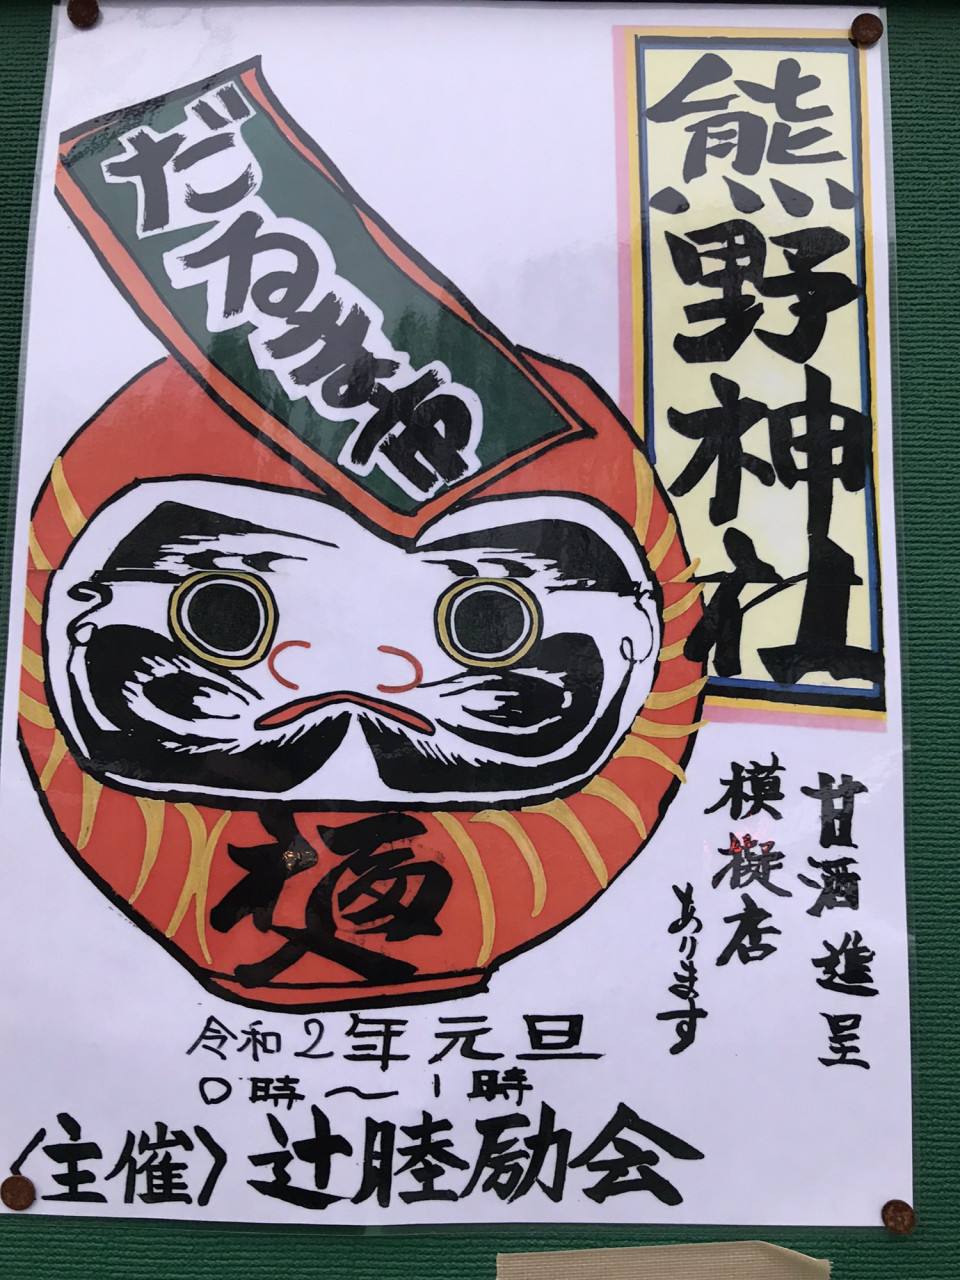 熊野神社
だるま市
甘酒進呈
模擬店
あります
福
令和2年元旦
0時〜1時
〈主催〉辻睦励会